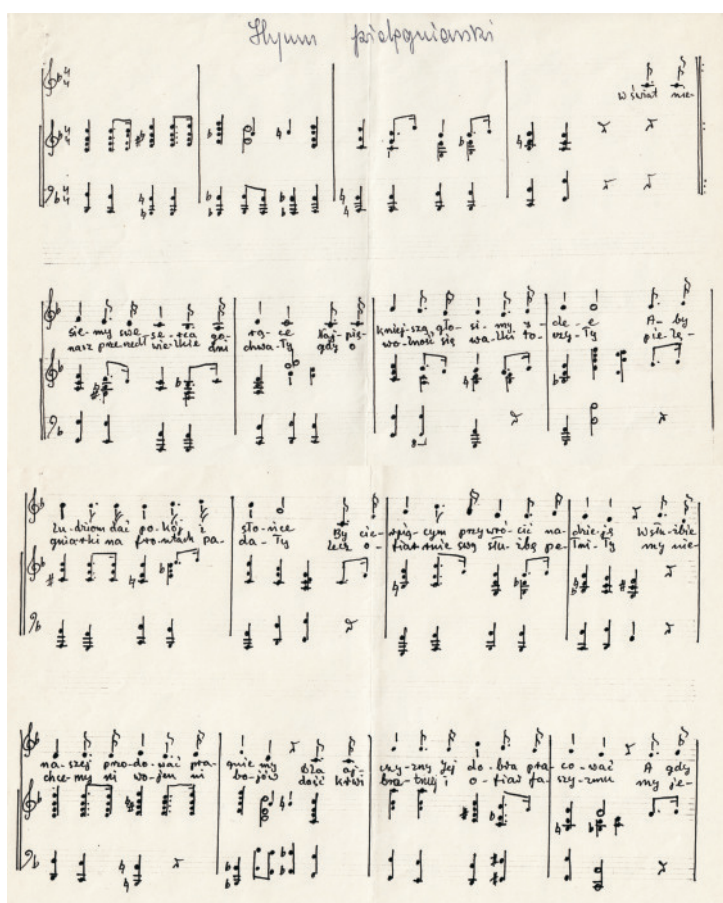 Hymn pielęgniarski
W świat nie-
sie-my swe se-rca go-
rą-ce Naj-pię-
kniej-szą gło-si-my i-
de-e A-by
nasz prze-szedł wiel-kie dni
chwa-ły gdy o
wol-ność się wal-ki to-
czy-ły pie-lę-
lu-dziom dać po-kój i
słoń-ce By cie-
rpią-cym przy-wró-cić na-
dzie-ję W słu-żbie
gniar-ki na fron-tach pa-
da-ły lecz o-
fiar-nie swą służ-bę peł-
ni-ły my nie
na-szej przo-do-wać pra-
gnie-my Dla oj-
czy-zny Jej do-bra pra-
co-wać A gdy
chce-my ni wo-jen ni
bo-jów dość krwi
bra-tniej i o-fiar fa-
szy-zmu my je-